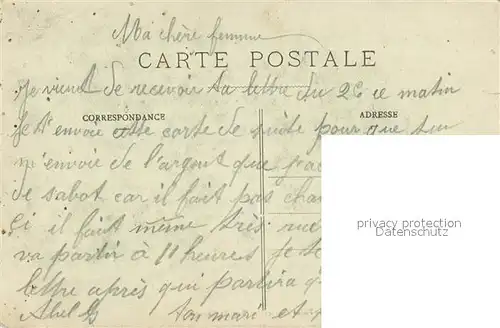 Ma chère femme
CARTE POSTALE
Je vient de recevoir ta lettre du 26 ce matin
CORRESPONDANCE
ADRESSE
Je t'envoie cette carte de suite pour que tu
m'envoie de l'argent que
de sabot car il fait pas
ci il fait même très
va partir à 11 heures je te
lettre après qui partira
Abel
ton mari et
privacy protection
Datenschutz